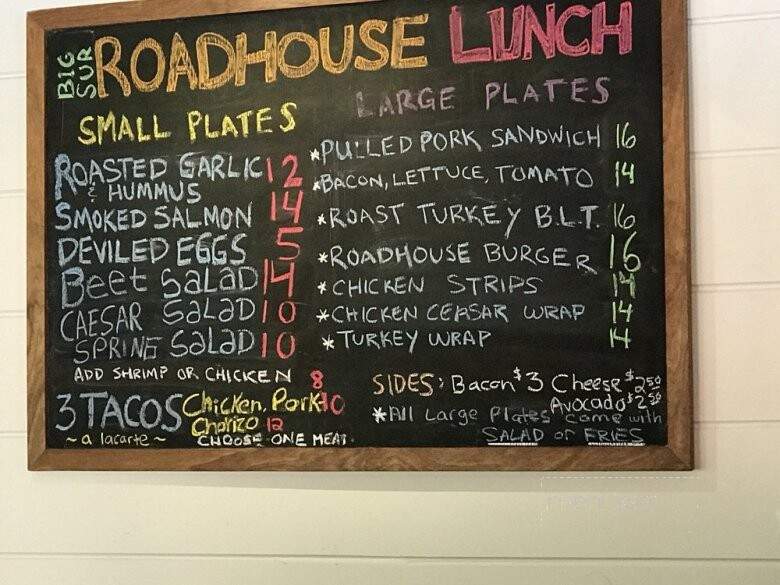 BIG SUR ROADHOUSE LUNCH
SMALL PLATES
ROASTED GARLIC 12
& HUMMUS
SMOKED SALMON 14
DEVILED EGGS 5
Beet SALAD 14
CAESAR SALAD 10
SPRING SALAD 10
ADD SHRIMP OR CHICKEN 8
3 TACOS Chicken, Pork 10
Chorizo 12
~ a lacarte ~ CHOOSE ONE MEAT.
LARGE PLATES
*PULLED PORK SANDWICH 16
*BACON, LETTUCE, TOMATO 14
*ROAST TURKEY B.L.T. 16
*ROADHOUSE BURGER 16
*CHICKEN STRIPS 14
*CHICKEN CEASAR WRAP 14
*TURKEY WRAP 14
SIDES: Bacon $3 Cheese $2.50
Avocado $2.50
*All Large Plates come with
SALAD or FRIES